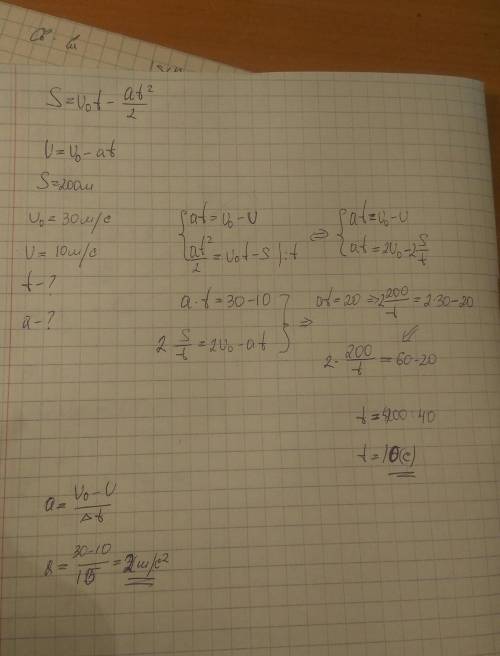 S = v₀t − at²/2
v = v₀ − at
S = 200м
v₀ = 30м/с
v = 10м/с
t − ?
a − ?
{ at = v₀ − v
{ at²/2 = v₀t − S | : t
⇔
{ at = v₀ − v
{ at = 2v₀ − 2 S/t
a · t = 30 − 10
2 · S/t = 2v₀ − at
} ⇒
at = 20 ⇒ 2 200/t = 2·30 − 20
⇙
2 · 200/t = 60 − 20
t = 400 : 40
t = 10(с)
a = v₀ − v / Δt
a = 30 − 10 / 10 = 2м/с²